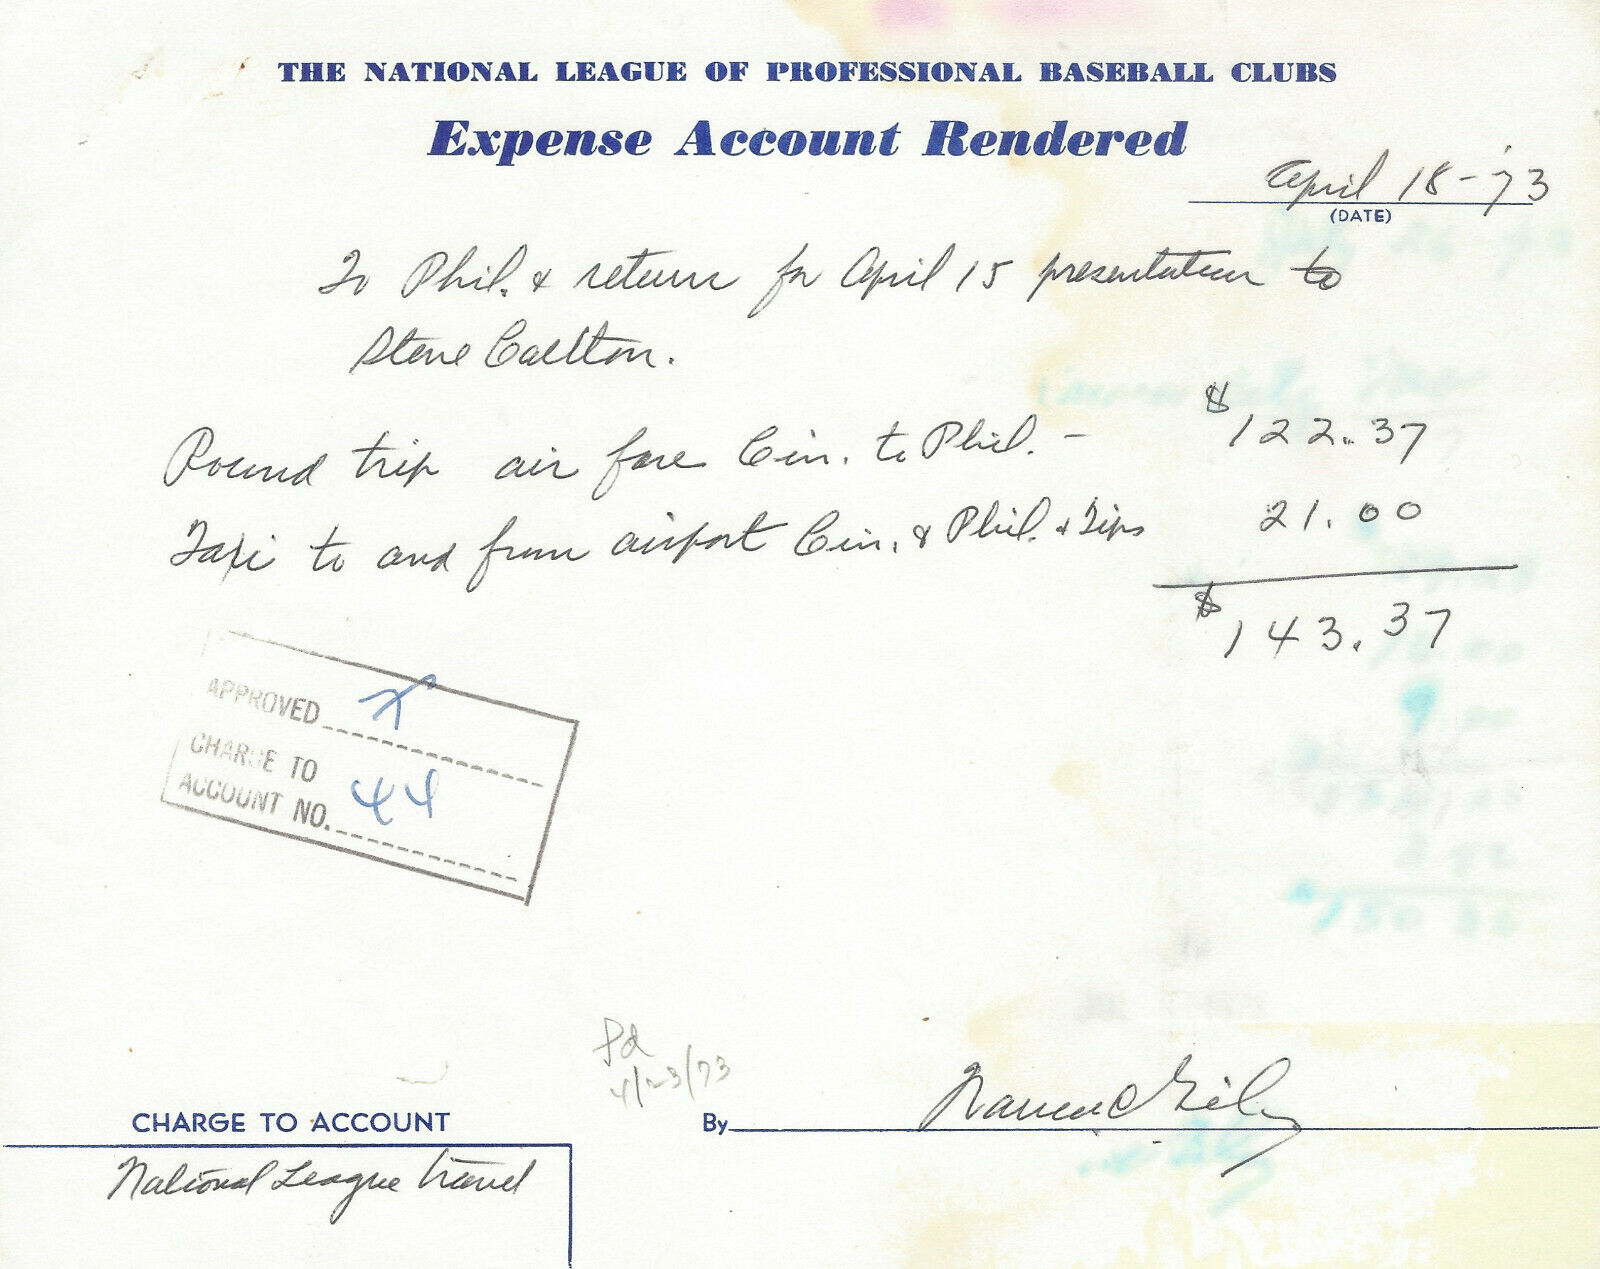 THE NATIONAL LEAGUE OF PROFESSIONAL BASEBALL CLUBS
Expense Account Rendered
April 18-'73
(DATE)
To Phil. & return for April 15 presentation to
Steve Carlton.
Round trip air fare Cin. to Phil. - $122.37
Taxi to and from airport Cin. & Phil. & Tips 21.00
$143.37
APPROVED
CHARGE TO
ACCOUNT NO. 44
Pd
4/23/73
CHARGE TO ACCOUNT
By Warren C Giles
National League Travel